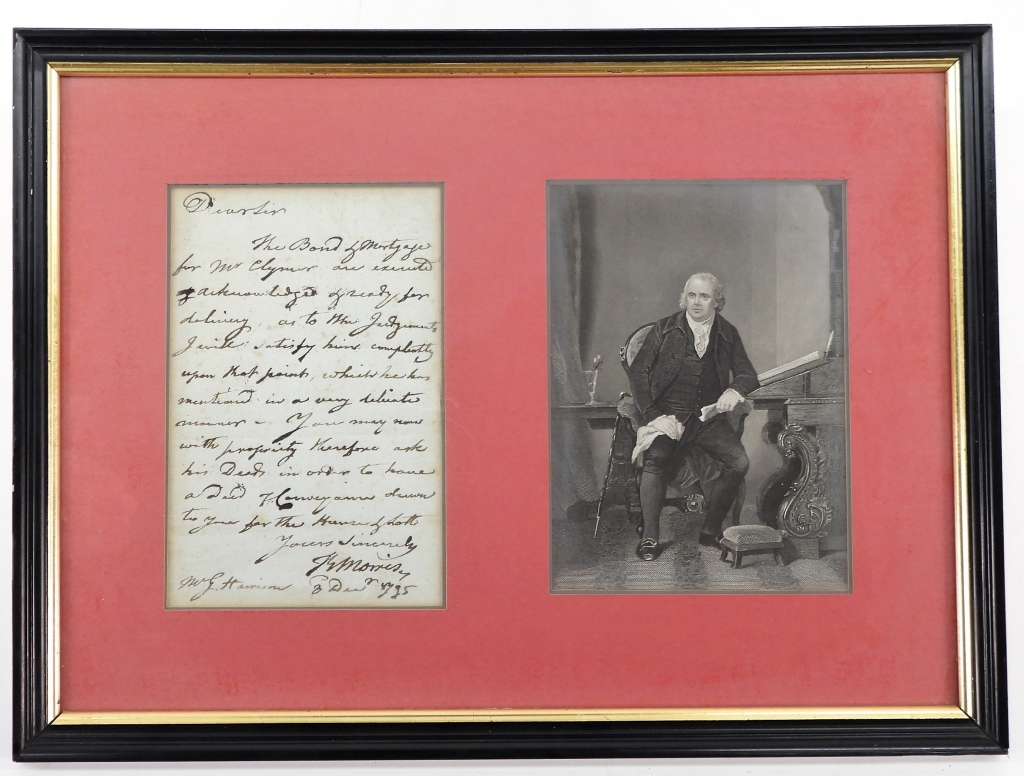 Dear Sir
The Bond & Mortgage
for Mr Clymer are executed
& acknowledged & ready for
delivery, as to the Judgements
I will satisfy him completely
upon that point, which he has
mentioned in a very delicate
manner - You may now
with propriety therefore ask
his Deeds in order to have
a Deed of Conveyance drawn
to you for the House & Lott
Yours Sincerely
Rt Morris
Mr G. Harrison 8 Decr 1795